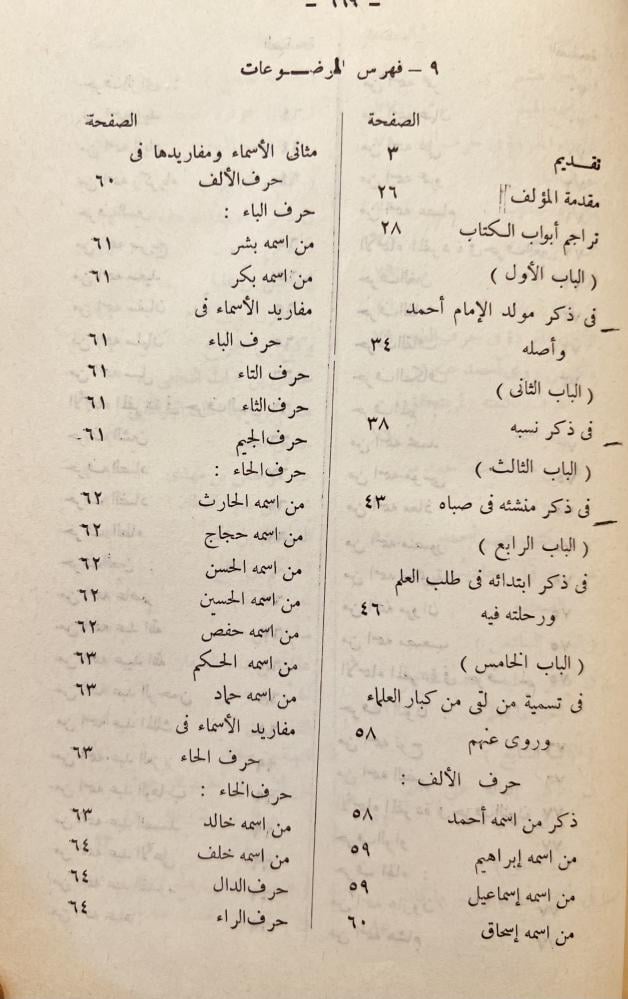 ٩ – فهرس الموضوعات
الصفحة
تقديم ٣
مقدمة المؤلف ٢٦
تراجم أبواب الكتاب ٢٨
( الباب الأول )
فى ذكر مولد الإمام أحمد
وأصله ٣٤
( الباب الثانى )
فى ذكر نسبه ٣٨
( الباب الثالث )
فى ذكر منشئه فى صباه ٤٣
( الباب الرابع )
فى ذكر ابتدائه فى طلب العلم
ورحلته فيه ٤٦
( الباب الخامس )
فى تسمية من لقى من كبار العلماء
وروى عنهم ٥٨
حرف الألف :
ذكر من اسمه أحمد ٥٨
من اسمه إبراهيم ٥٩
من اسمه إسماعيل ٥٩
من اسمه إسحاق ٦٠
الصفحة
مثانى الأسماء ومفاريدها فى
حرف الألف ٦٠
حرف الباء :
من اسمه بشر ٦١
من اسمه بكر ٦١
مفاريد الأسماء فى
حرف الباء ٦١
حرف التاء ٦١
حرف الثاء ٦١
حرف الجيم ٦١
حرف الحاء :
من اسمه الحارث ٦٢
من اسمه حجاج ٦٢
من اسمه الحسن ٦٢
من اسمه الحسين ٦٢
من اسمه حفص ٦٢
من اسمه الحكم ٦٣
من اسمه حماد ٦٣
مفاريد الأسماء فى
حرف الحاء ٦٣
حرف الحاء :
من اسمه خالد ٦٣
من اسمه خلف ٦٤
حرف الدال ٦٤
حرف الراء ٦٤